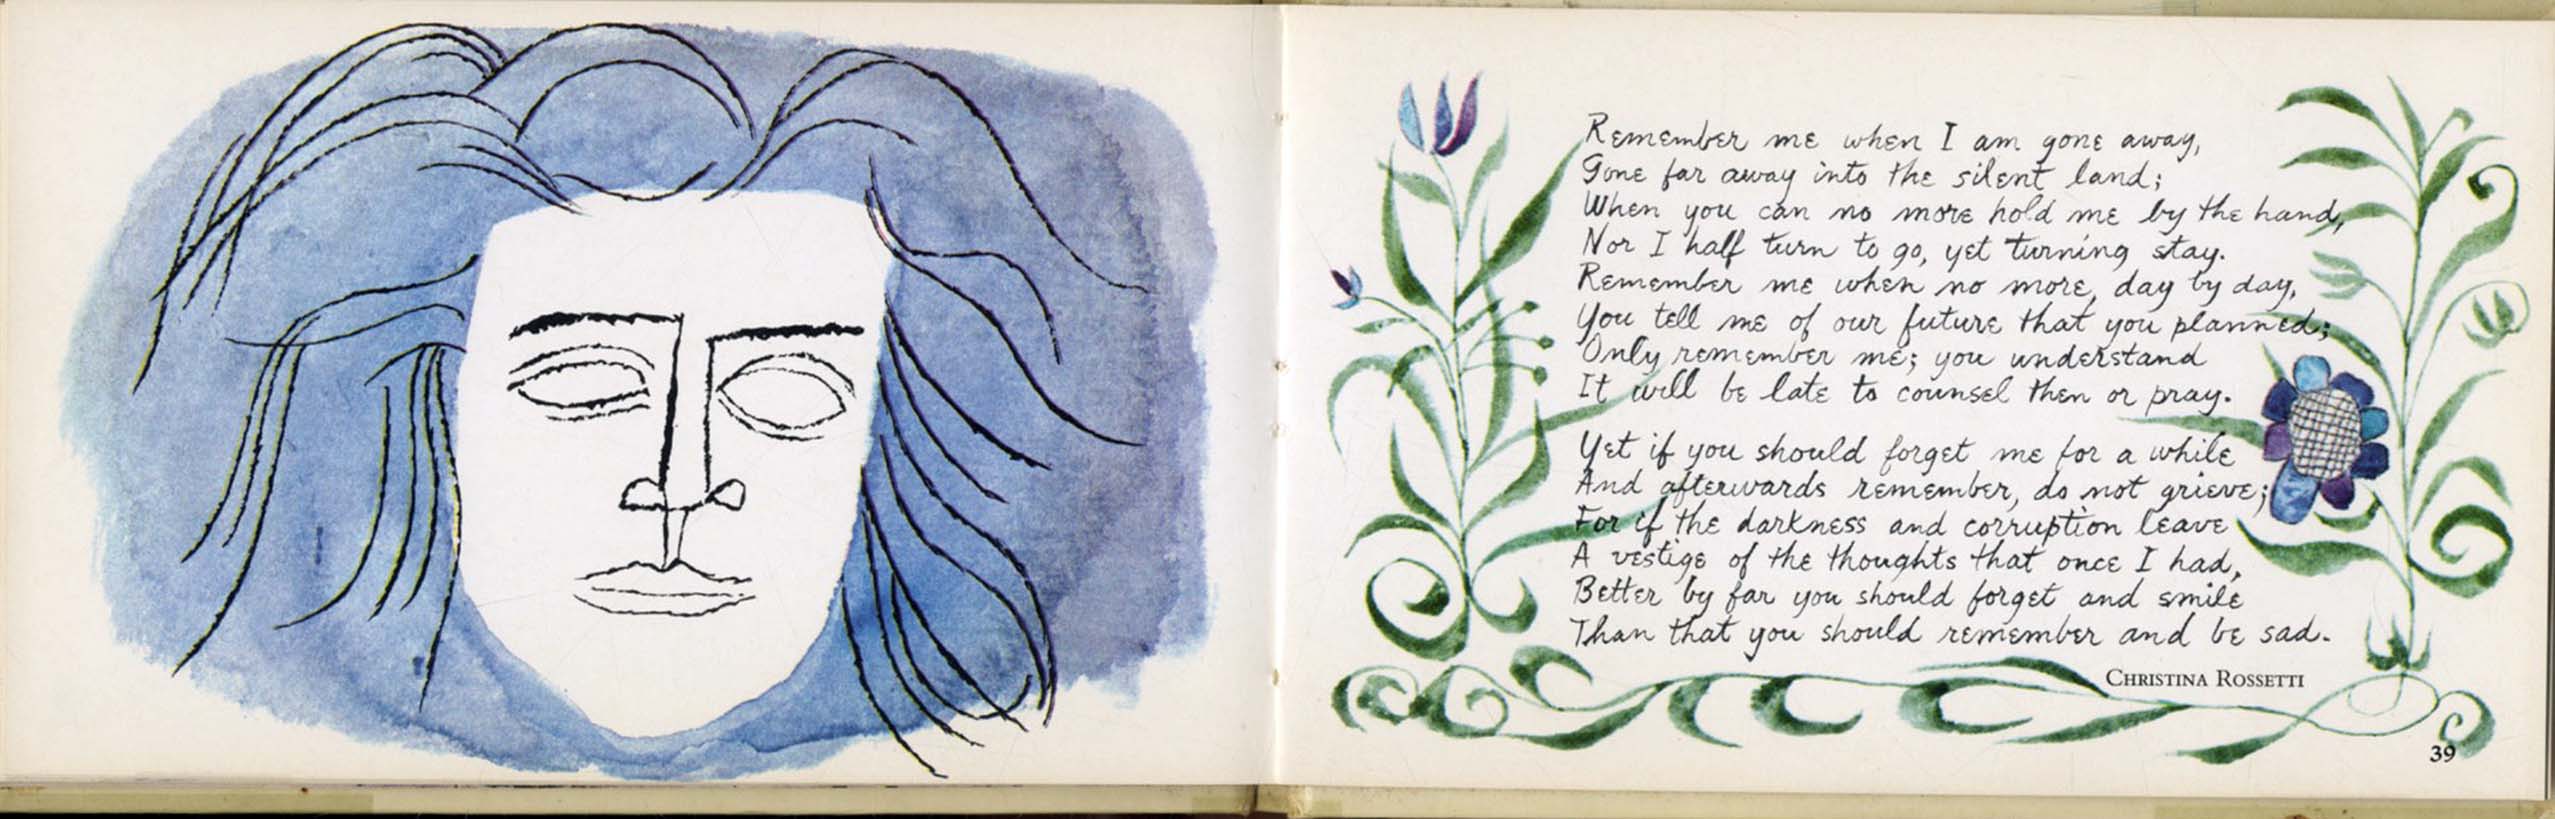 Remember me when I am gone away,
Gone far away into the silent land;
When you can no more hold me by the hand,
Nor I half turn to go, yet turning stay.
Remember me when no more, day by day,
You tell me of our future that you planned;
Only remember me; you understand
It will be late to counsel then or pray.
Yet if you should forget me for a while
And afterwards remember, do not grieve;
For if the darkness and corruption leave
A vestige of the thoughts that once I had,
Better by far you should forget and smile
Than that you should remember and be sad.
CHRISTINA ROSSETTI
39